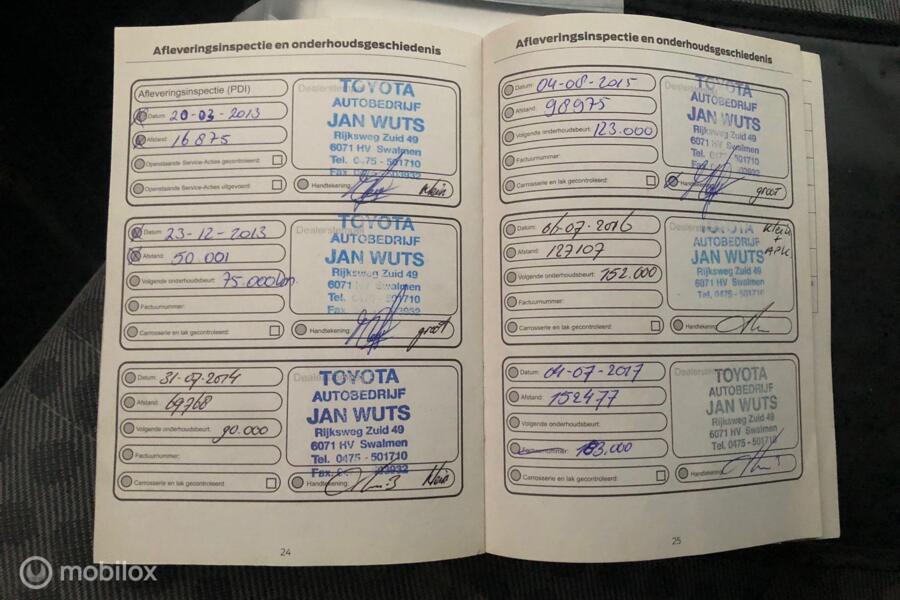 Afleveringsinspectie en onderhoudsgeschiedenis
Afleveringsinspectie (PDI)
Datum: 20-03-2013
Afstand: 16875
Openstaande Service-Acties gecontroleerd:
Openstaande Service-Acties uitgevoerd:
TOYOTA
AUTOBEDRIJF
JAN WUTS
Rijksweg Zuid 49
6071 HV Swalmen
Tel. 0475 - 501710
Handtekening: Klein
Datum: 23-12-2013
Afstand: 50.001
Volgende onderhoudsbeurt: 75.000 km
Factuurnummer:
Carrosserie en lak gecontroleerd:
TOYOTA
AUTOBEDRIJF
JAN WUTS
Rijksweg Zuid 49
6071 HV Swalmen
Handtekening: groot
Datum: 31-07-2014
Afstand: 69768
Volgende onderhoudsbeurt: 90.000
Factuurnummer:
Carrosserie en lak gecontroleerd:
TOYOTA
AUTOBEDRIJF
JAN WUTS
Rijksweg Zuid 49
6071 HV Swalmen
Tel. 0475 - 501710
Handtekening: Klein
24
Afleveringsinspectie en onderhoudsgeschiedenis
Datum: 04-08-2015
Afstand: 98975
Volgende onderhoudsbeurt: 123.000
Factuurnummer:
Carrosserie en lak gecontroleerd:
TOYOTA
AUTOBEDRIJF
JAN WUTS
Rijksweg Zuid 49
6071 HV Swalmen
Handtekening: groot
Datum: 06-07-2016
Afstand: 127107
Volgende onderhoudsbeurt: 152.000
Factuurnummer:
Carrosserie en lak gecontroleerd:
TOYOTA
AUTOBEDRIJF
JAN WUTS
Rijksweg Zuid 49
6071 HV Swalmen
Tel. 0475 - 501710
Klein
+
APK
Handtekening:
Datum: 04-07-2017
Afstand: 152477
Volgende onderhoudsbeurt:
Factuurnummer: 183.000
Carrosserie en lak gecontroleerd:
TOYOTA
AUTOBEDRIJF
JAN WUTS
Rijksweg Zuid 49
6071 HV Swalmen
Tel. 0475 - 501710
Handtekening:
25
mobilox